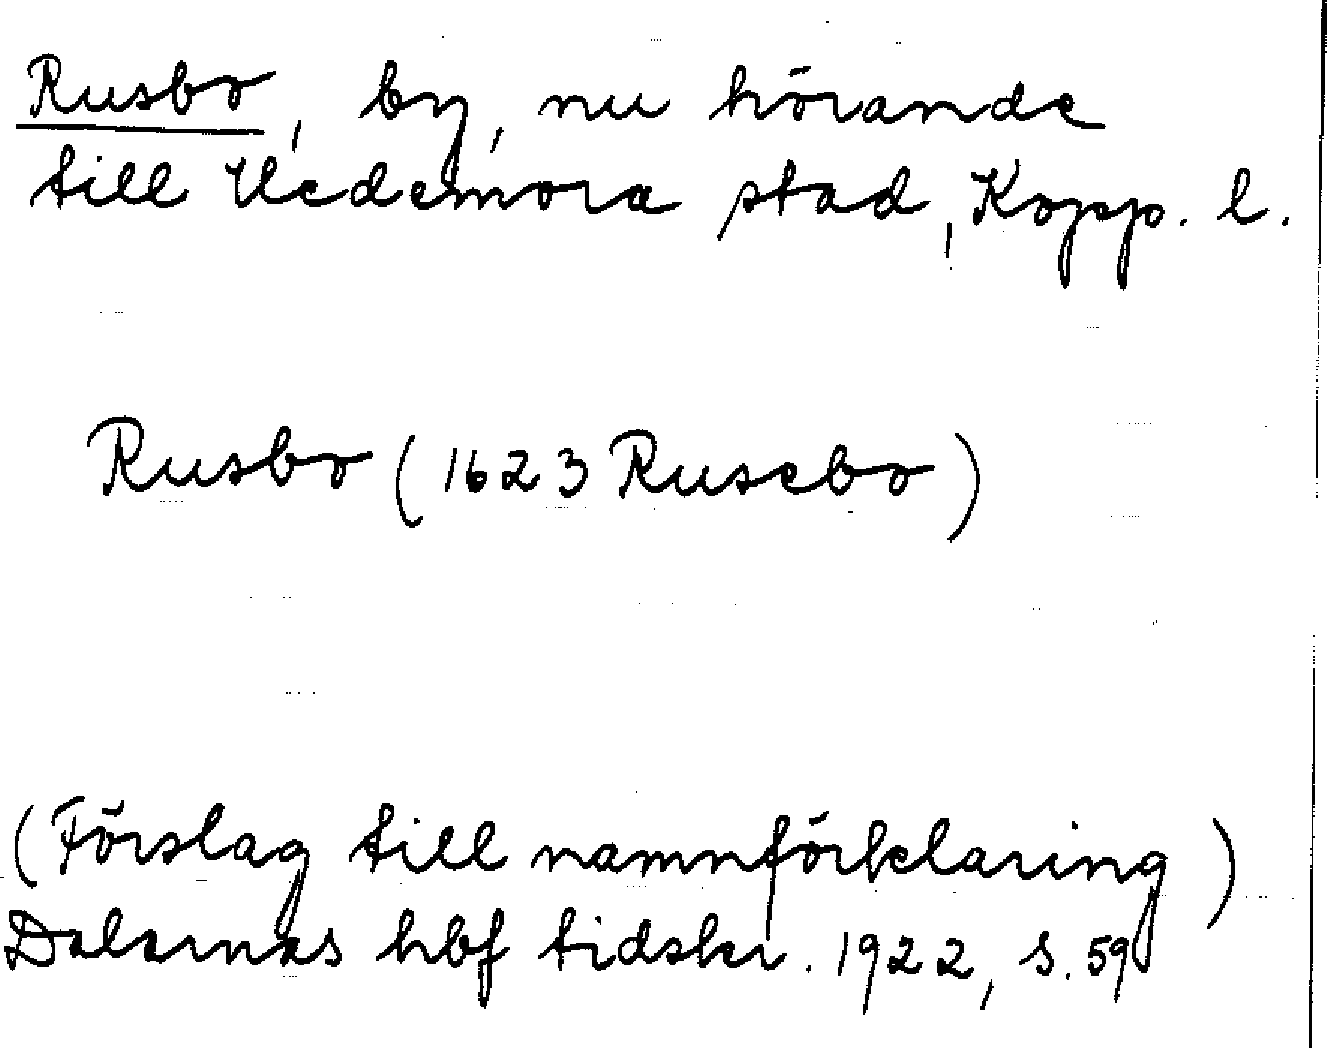 Rusbo, by, nu hörande
till Hedemora stad, Kopp. l.
Rusbo (1623 Rusebo)
(Förslag till namnförklaring)
Dalarnas hbf tidskr. 1922, s. 59